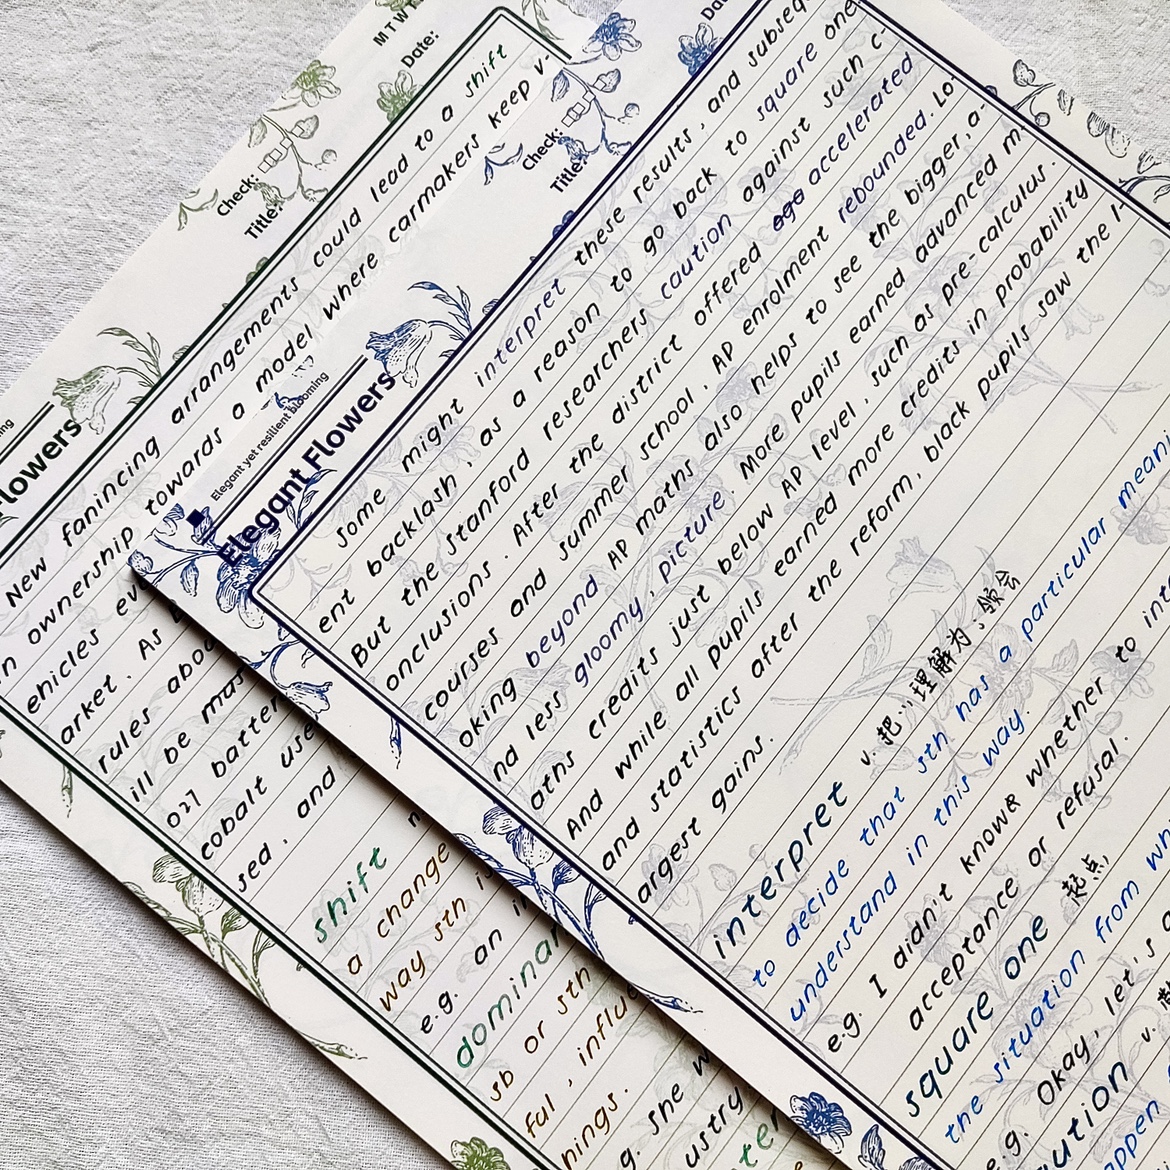 MTWT
Date:
Check:
Title:
Flowers
New fanincing arrangements could lead to a shift
n ownership towards a model where carmakers keep
ehicles
arket. As
rules abou
ill be
027 batter
cobalt use
sed, and
shift
a change
way sth is
e.g. an
dominan
sb or sth
ful, influ
nings.
she
ustry
Da
Check:
Title:
Elegant yet resilient blooming
Elegant Flowers
Some might interpret these results, and subseq
ent backlash, as a reason to go back to square one
But the Stanford researchers caution against such c-
onclusions. After the district offered ege accelerated
courses and summer school, AP enrolment rebounded. Lo
oking beyond AP maths also helps to see the bigger, a-
nd less gloomy, picture. More pupils earned advanced m-
aths credits just below AP level, such as pre-calculus.
And while all pupils earned more credits in probability
and statistics after the reform, black pupils saw the l-
argest gains.
interpret v. 把…理解为；领会
to decide that sth has a particular meani
understand in this way.
e.g. I didn't know whether to int
acceptance or refusal.
square one 起点
the situation from wh
e.g. Okay, let's
ution v.
appen